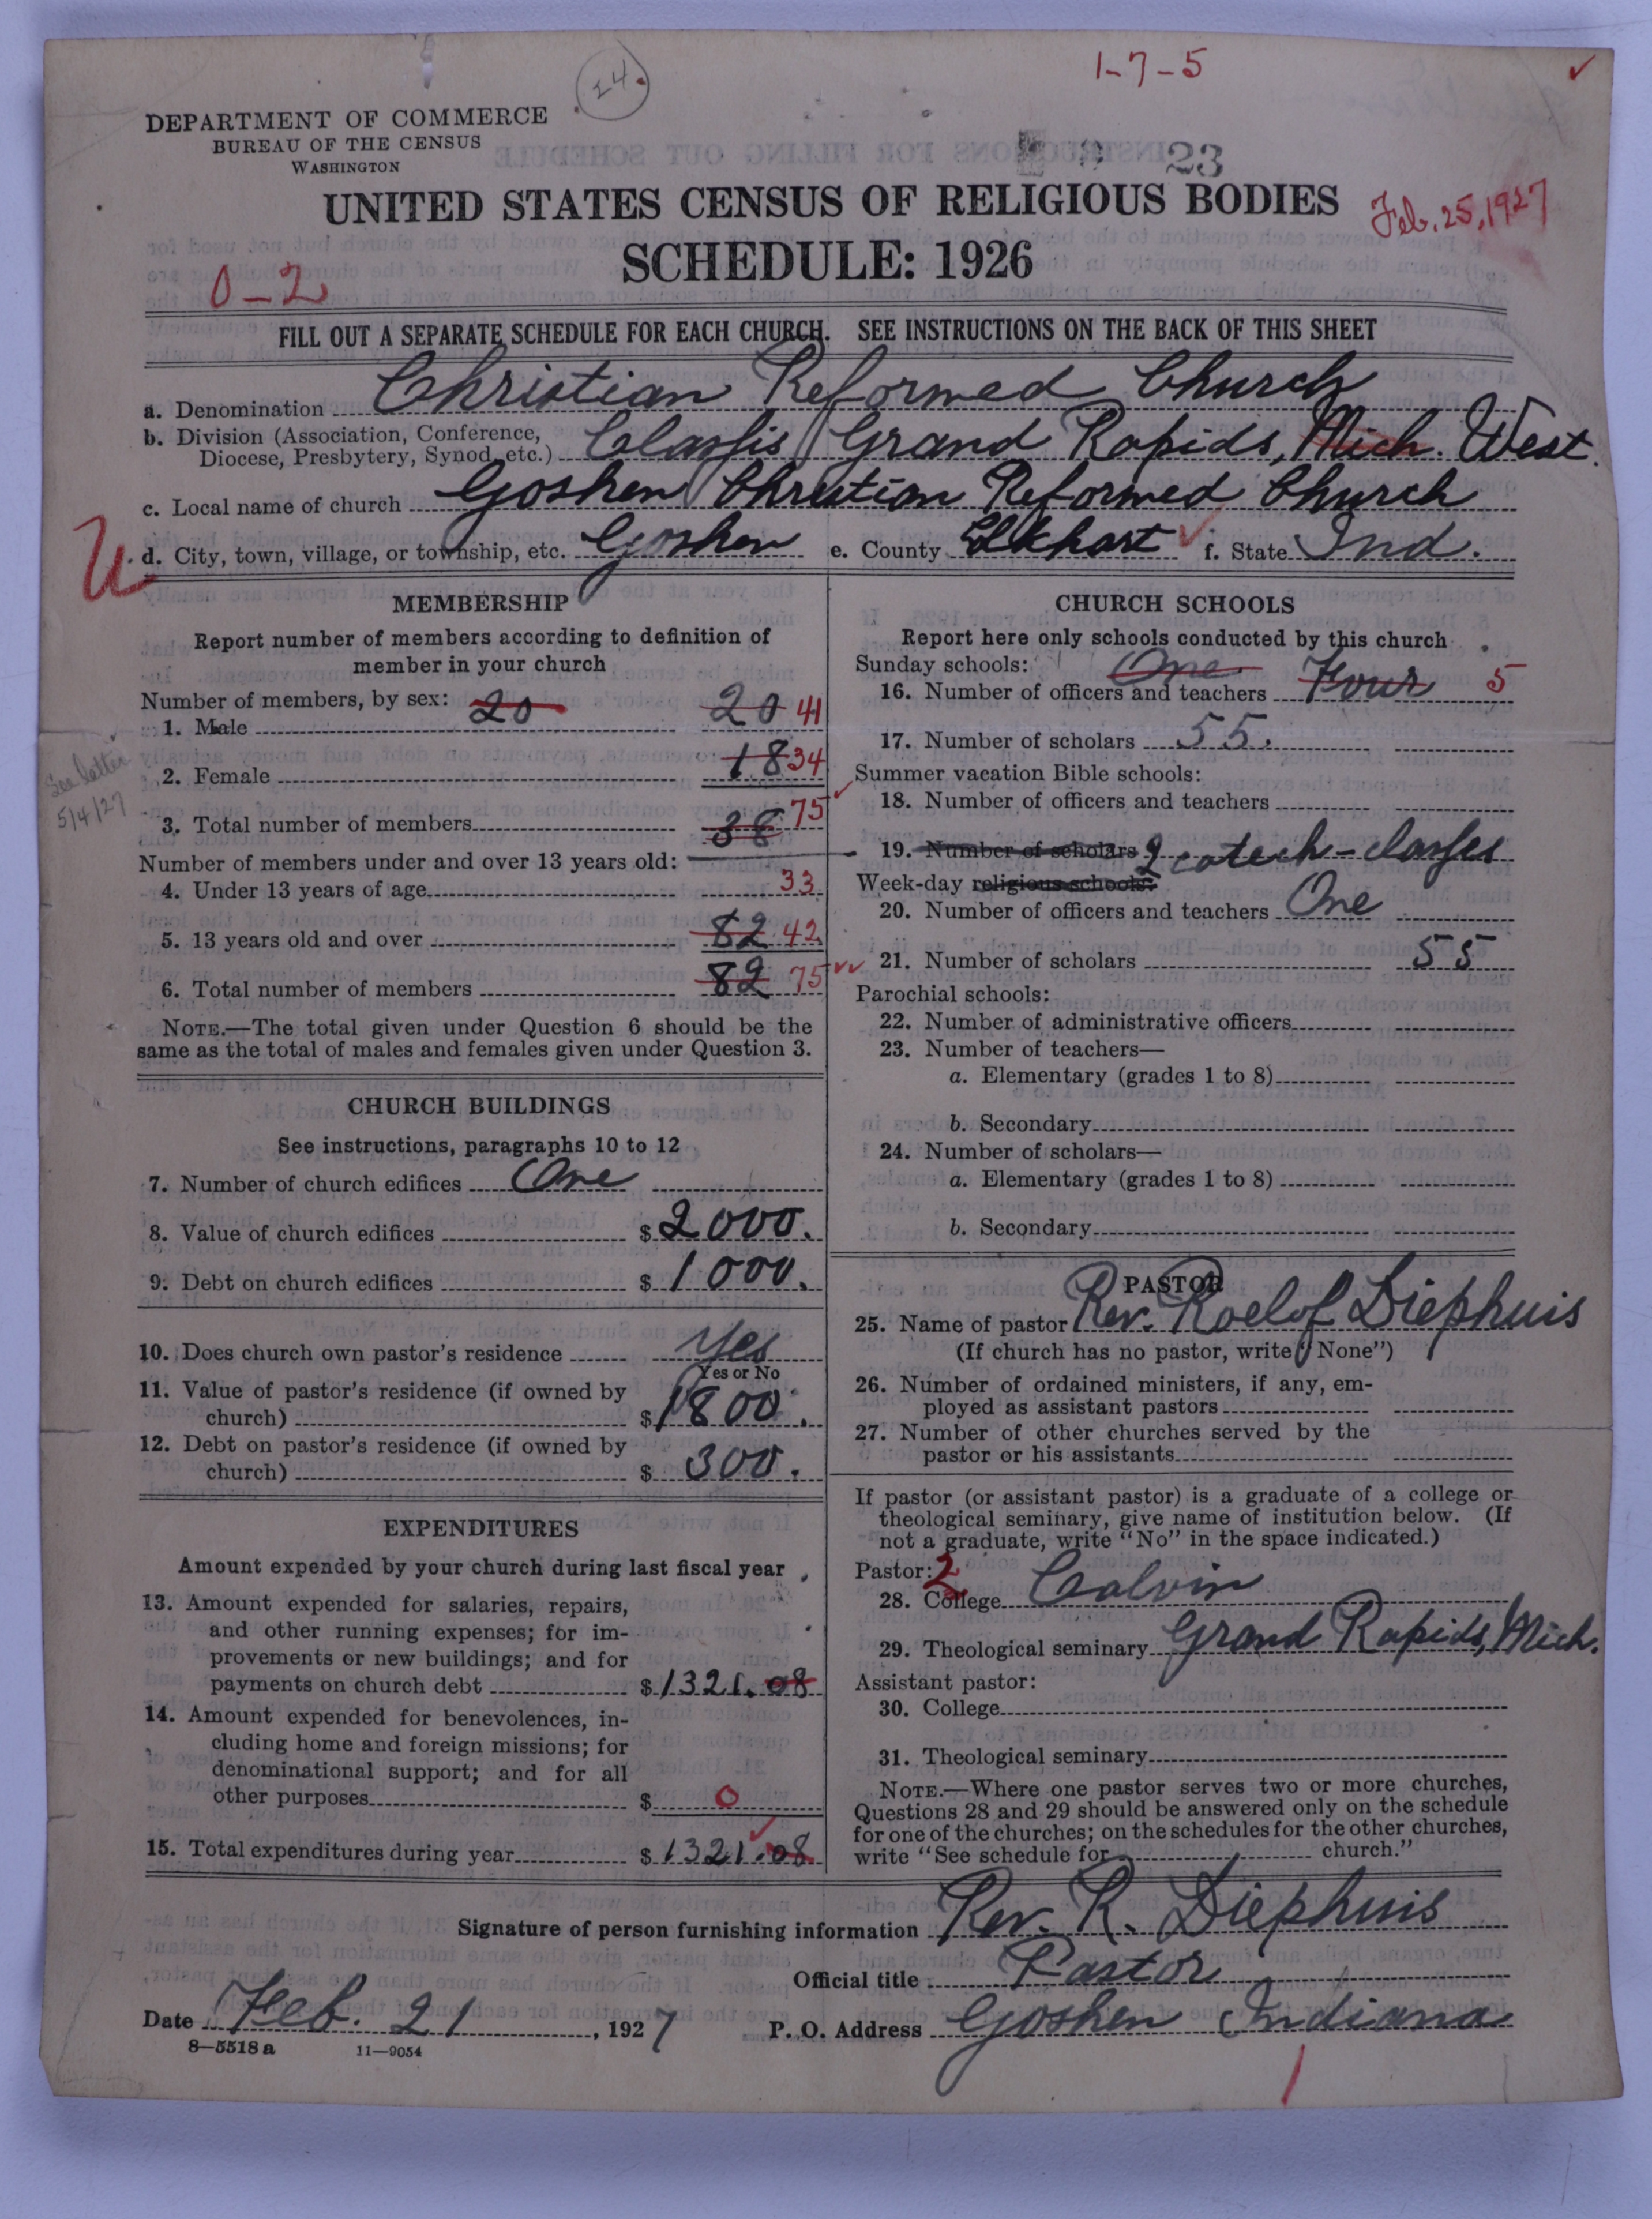 24.
1-7-5
DEPARTMENT OF COMMERCE
BUREAU OF THE CENSUS
WASHINGTON
23
UNITED STATES CENSUS OF RELIGIOUS BODIES
Feb. 25, 1927
SCHEDULE: 1926
0-2
FILL OUT A SEPARATE SCHEDULE FOR EACH CHURCH. SEE INSTRUCTIONS ON THE BACK OF THIS SHEET
a. Denomination Christian Reformed Church
b. Division (Association, Conference, Diocese, Presbytery, Synod, etc.) Classis Grand Rapids, Mich. West.
c. Local name of church Goshen Christian Reformed Church
d. City, town, village, or township, etc. Goshen e. County Elkhart f. State Ind.
MEMBERSHIP
Report number of members according to definition of
member in your church
Number of members, by sex: 20
1. Male 20 41
2. Female 18 34
See letter
5/4/27
3. Total number of members 38 75
Number of members under and over 13 years old:
4. Under 13 years of age 33
5. 13 years old and over 82 42
6. Total number of members 82 75
NOTE.—The total given under Question 6 should be the
same as the total of males and females given under Question 3.
CHURCH BUILDINGS
See instructions, paragraphs 10 to 12
7. Number of church edifices One
8. Value of church edifices $2000.
9. Debt on church edifices $1000.
10. Does church own pastor's residence Yes
Yes or No
11. Value of pastor's residence (if owned by
church) $1800.
12. Debt on pastor's residence (if owned by
church) $300.
EXPENDITURES
Amount expended by your church during last fiscal year
13. Amount expended for salaries, repairs,
and other running expenses; for im-
provements or new buildings; and for
payments on church debt $1321.08
14. Amount expended for benevolences, in-
cluding home and foreign missions; for
denominational support; and for all
other purposes $0
15. Total expenditures during year $1321.08
CHURCH SCHOOLS
Report here only schools conducted by this church
Sunday schools: One
16. Number of officers and teachers Four 5
17. Number of scholars 55.
Summer vacation Bible schools:
18. Number of officers and teachers
19. Number of scholars 2 catech-classes
Week-day religious schools:
20. Number of officers and teachers One
21. Number of scholars 55
Parochial schools:
22. Number of administrative officers
23. Number of teachers—
a. Elementary (grades 1 to 8)
b. Secondary
24. Number of scholars—
a. Elementary (grades 1 to 8)
b. Secondary
PASTOR
25. Name of pastor Rev. Roelof Diephuis
(If church has no pastor, write "None")
26. Number of ordained ministers, if any, em-
ployed as assistant pastors
27. Number of other churches served by the
pastor or his assistants
If pastor (or assistant pastor) is a graduate of a college or
theological seminary, give name of institution below. (If
not a graduate, write "No" in the space indicated.)
Pastor: 2
28. College Calvin
29. Theological seminary Grand Rapids, Mich.
Assistant pastor:
30. College
31. Theological seminary
NOTE.—Where one pastor serves two or more churches,
Questions 28 and 29 should be answered only on the schedule
for one of the churches; on the schedules for the other churches,
write "See schedule for church."
Signature of person furnishing information Rev. R. Diephuis
Official title Pastor
Date Feb. 21, 1927 P. O. Address Goshen Indiana
8—5518 a 11—9054